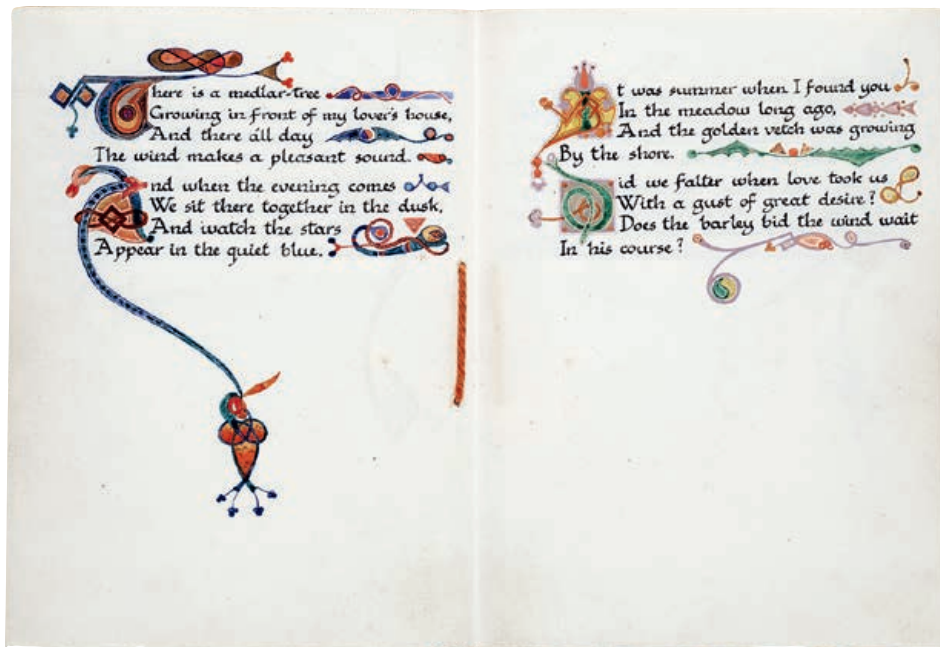 There is a medlar-tree
Growing in front of my lover's house,
And there all day
The wind makes a pleasant sound.
And when the evening comes
We sit there together in the dusk,
And watch the stars
Appear in the quiet blue.
It was summer when I found you
In the meadow long ago,
And the golden vetch was growing
By the shore.
Did we falter when love took us
With a gust of great desire?
Does the barley bid the wind wait
In his course?